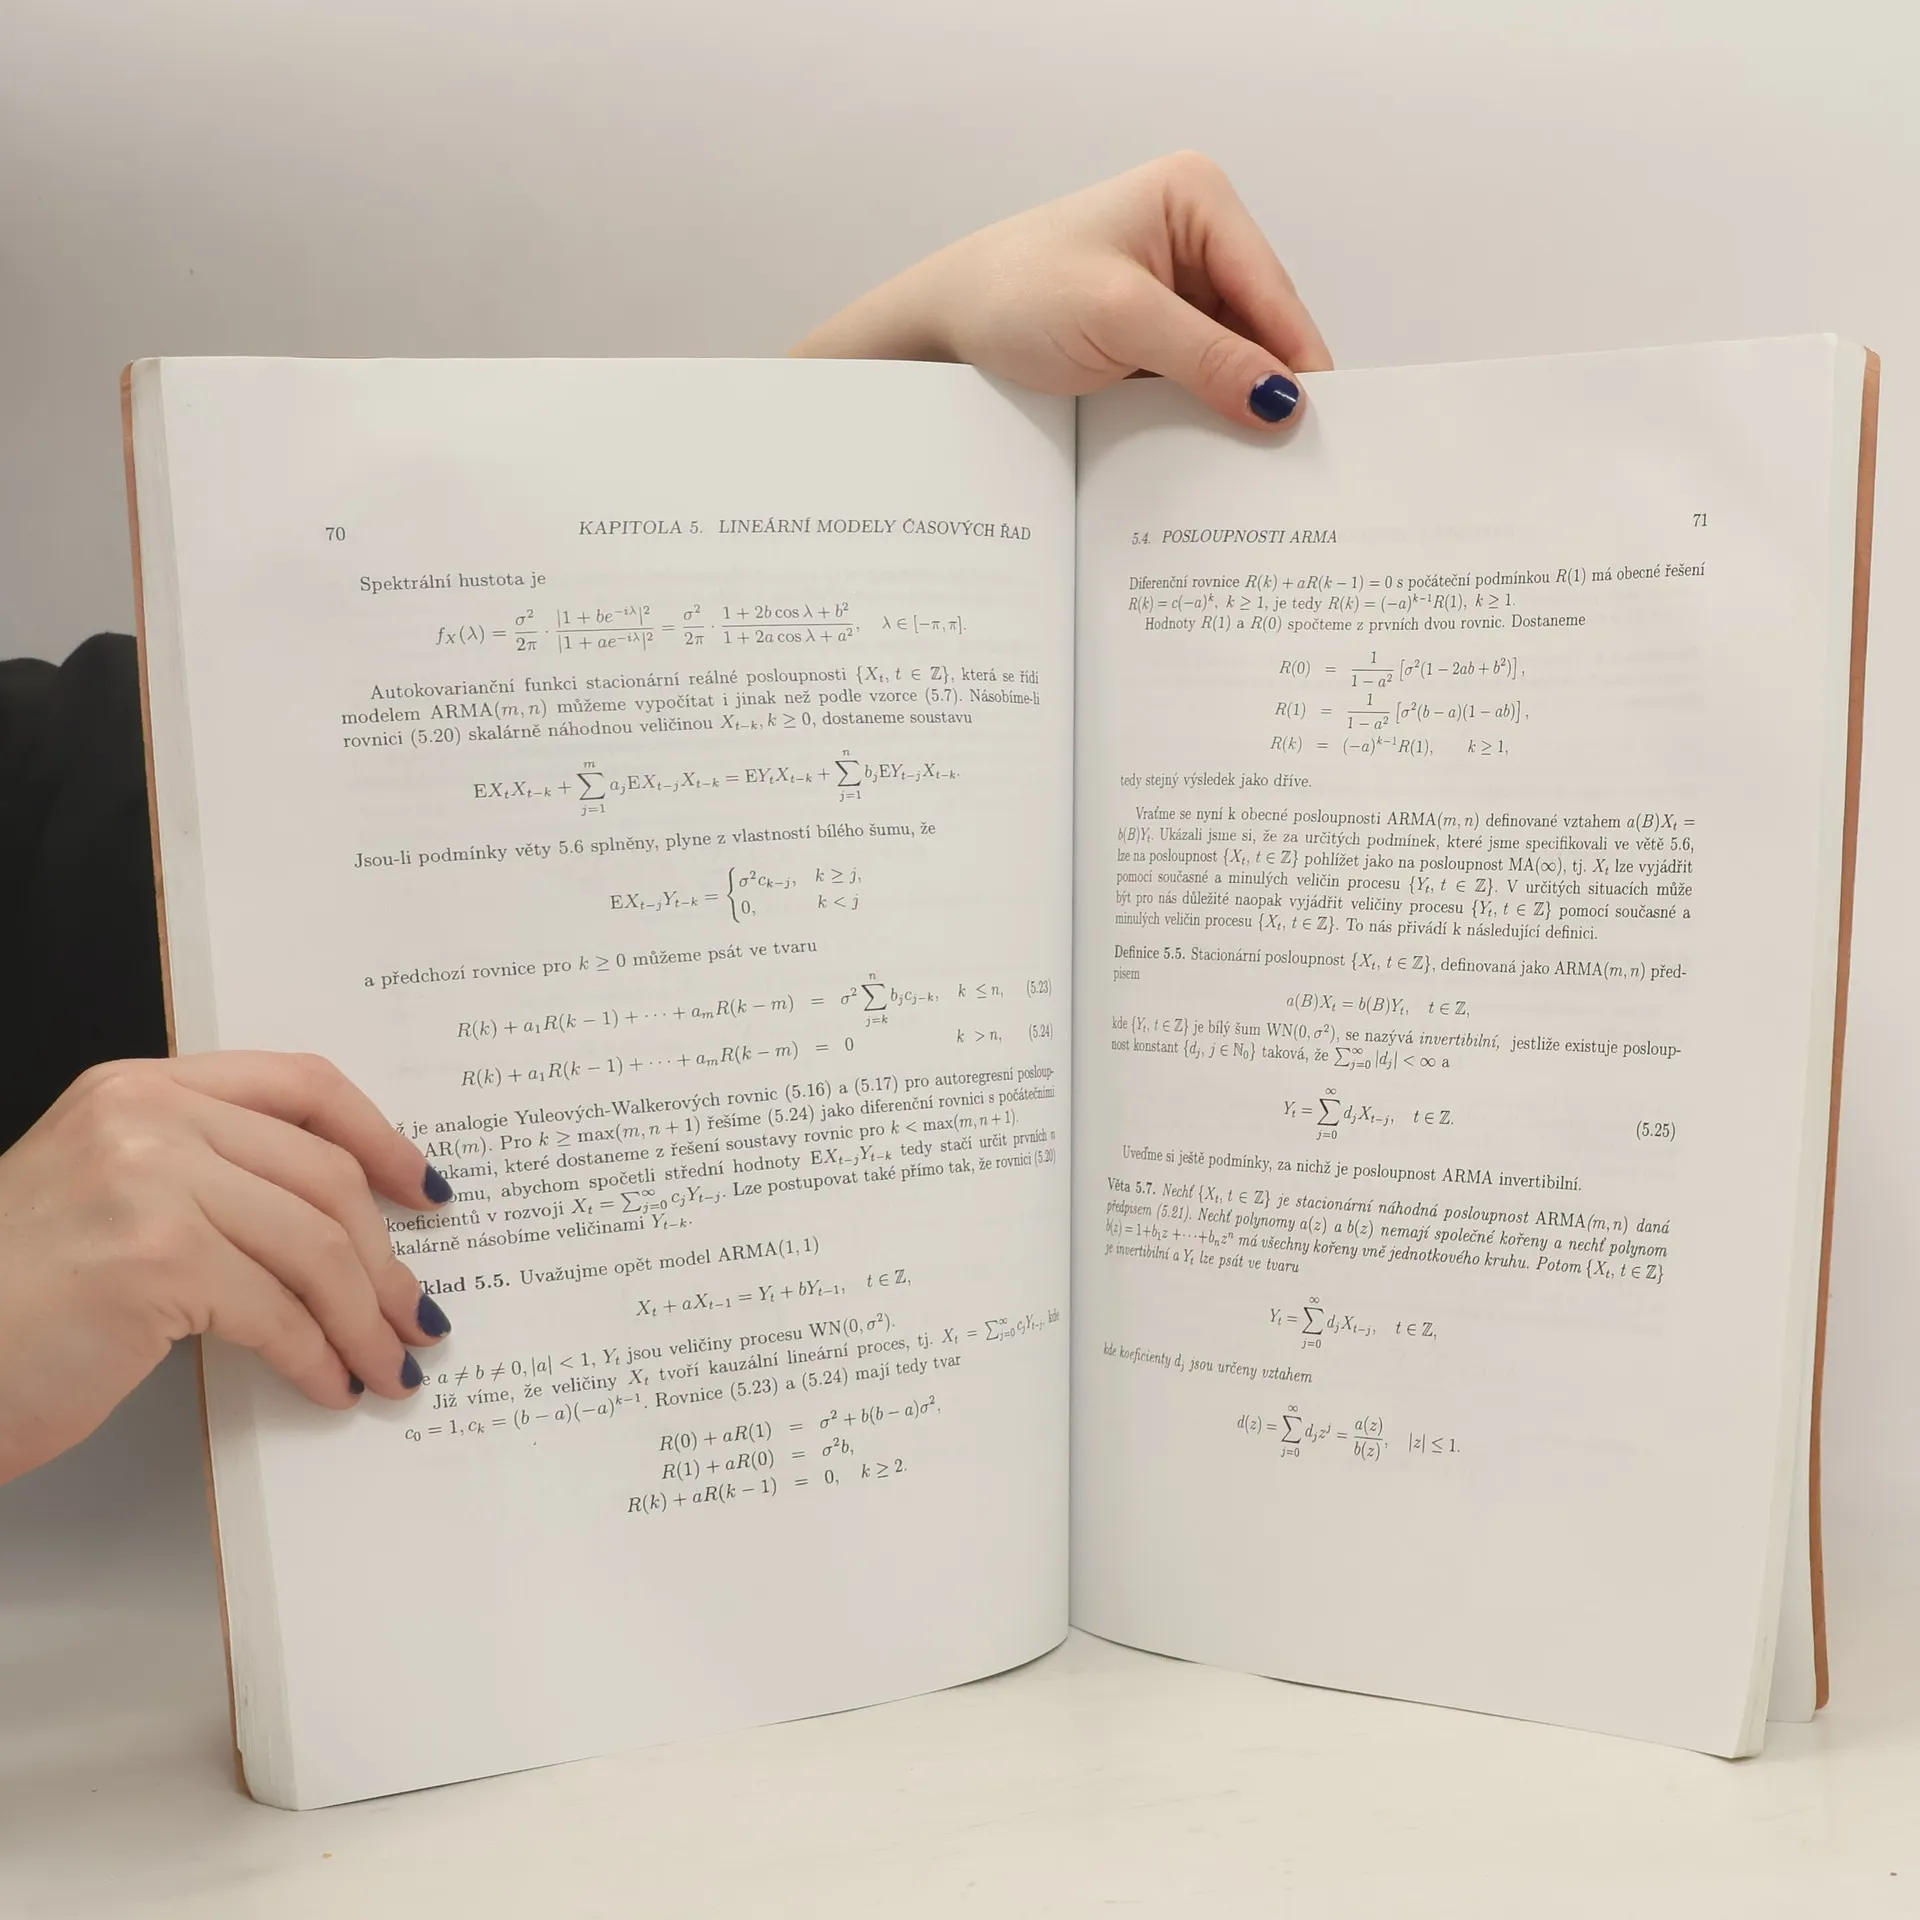 70
KAPITOLA 5. LINEÁRNÍ MODELY ČASOVÝCH ŘAD
Spektrální hustota je
f_X(λ) = σ²/2π · |1 + be^{−iλ}|²/|1 + ae^{−iλ}|² = σ²/2π · (1 + 2b cos λ + b²)/(1 + 2a cos λ + a²), λ ∈ [−π, π].
Autokovarianční funkci stacionární reálné posloupnosti {X_t, t ∈ ℤ}, která se řídí
modelem ARMA(m, n) můžeme vypočítat i jinak než podle vzorce (5.7). Násobíme-li
rovnici (5.20) skalárně náhodnou veličinou X_{t−k}, k ≥ 0, dostaneme soustavu
EX_tX_{t−k} + ∑_{j=1}^{m} a_jEX_{t−j}X_{t−k} = EY_tX_{t−k} + ∑_{j=1}^{n} b_jEY_{t−j}X_{t−k}.
Jsou-li podmínky věty 5.6 splněny, plyne z vlastností bílého šumu, že
EX_{t−j}Y_{t−k} = { σ²c_{k−j}, k ≥ j,
0, k < j
a předchozí rovnice pro k ≥ 0 můžeme psát ve tvaru
R(k) + a₁R(k − 1) + ⋯ + a_mR(k − m) = σ² ∑_{j=k}^{n} b_jc_{j−k}, k ≤ n, (5.23)
R(k) + a₁R(k − 1) + ⋯ + a_mR(k − m) = 0 k > n, (5.24)
ž je analogie Yuleových-Walkerových rovnic (5.16) a (5.17) pro autoregresní posloup-
AR(m). Pro k ≥ max(m, n + 1) řešíme (5.24) jako diferenční rovnici s počátečními
nkami, které dostaneme z řešení soustavy rovnic pro k < max(m, n + 1).
omu, abychom spočetli střední hodnoty EX_{t−j}Y_{t−k} tedy stačí určit prvních n
koeficientů v rozvoji X_t = ∑_{j=0}^{∞} c_jY_{t−j}. Lze postupovat také přímo tak, že rovnici (5.20)
skalárně násobíme veličinami Y_{t−k}.
klad 5.5. Uvažujme opět model ARMA(1, 1)
X_t + aX_{t−1} = Y_t + bY_{t−1}, t ∈ ℤ,
e a ≠ b ≠ 0, |a| < 1, Y_t jsou veličiny procesu WN(0, σ²).
Již víme, že veličiny X_t tvoří kauzální lineární proces, tj. X_t = ∑_{j=0}^{∞} c_jY_{t−j}, kde
c₀ = 1, c_k = (b − a)(−a)^{k−1}. Rovnice (5.23) a (5.24) mají tedy tvar
R(0) + aR(1) = σ² + b(b − a)σ²,
R(1) + aR(0) = σ²b,
R(k) + aR(k − 1) = 0, k ≥ 2.
5.4. POSLOUPNOSTI ARMA
71
Diferenční rovnice R(k) + aR(k − 1) = 0 s počáteční podmínkou R(1) má obecné řešení
R(k) = c(−a)^k, k ≥ 1, je tedy R(k) = (−a)^{k−1}R(1), k ≥ 1.
Hodnoty R(1) a R(0) spočteme z prvních dvou rovnic. Dostaneme
R(0) = 1/(1 − a²) [σ²(1 − 2ab + b²)],
R(1) = 1/(1 − a²) [σ²(b − a)(1 − ab)],
R(k) = (−a)^{k−1}R(1), k ≥ 1,
tedy stejný výsledek jako dříve.
Vraťme se nyní k obecné posloupnosti ARMA(m, n) definované vztahem a(B)X_t =
b(B)Y_t. Ukázali jsme si, že za určitých podmínek, které jsme specifikovali ve větě 5.6,
lze na posloupnost {X_t, t ∈ ℤ} pohlížet jako na posloupnost MA(∞), tj. X_t lze vyjádřit
pomocí současné a minulých veličin procesu {Y_t, t ∈ ℤ}. V určitých situacích může
být pro nás důležité naopak vyjádřit veličiny procesu {Y_t, t ∈ ℤ} pomocí současné a
minulých veličin procesu {X_t, t ∈ ℤ}. To nás přivádí k následující definici.
Definice 5.5. Stacionární posloupnost {X_t, t ∈ ℤ}, definovaná jako ARMA(m, n) před-
pisem
a(B)X_t = b(B)Y_t, t ∈ ℤ,
kde {Y_t, t ∈ ℤ} je bílý šum WN(0, σ²), se nazývá invertibilní, jestliže existuje posloup-
nost konstant {d_j, j ∈ ℕ₀} taková, že ∑_{j=0}^{∞} |d_j| < ∞ a
Y_t = ∑_{j=0}^{∞} d_jX_{t−j}, t ∈ ℤ. (5.25)
Uveďme si ještě podmínky, za nichž je posloupnost ARMA invertibilní.
Věta 5.7. Nechť {X_t, t ∈ ℤ} je stacionární náhodná posloupnost ARMA(m, n) daná
předpisem (5.21). Nechť polynomy a(z) a b(z) nemají společné kořeny a nechť polynom
b(z) = 1+b₁z +⋯+b_nz^n má všechny kořeny vně jednotkového kruhu. Potom {X_t, t ∈ ℤ}
je invertibilní a Y_t lze psát ve tvaru
Y_t = ∑_{j=0}^{∞} d_jX_{t−j}, t ∈ ℤ,
kde koeficienty d_j jsou určeny vztahem
d(z) = ∑_{j=0}^{∞} d_jz^j = a(z)/b(z), |z| ≤ 1.